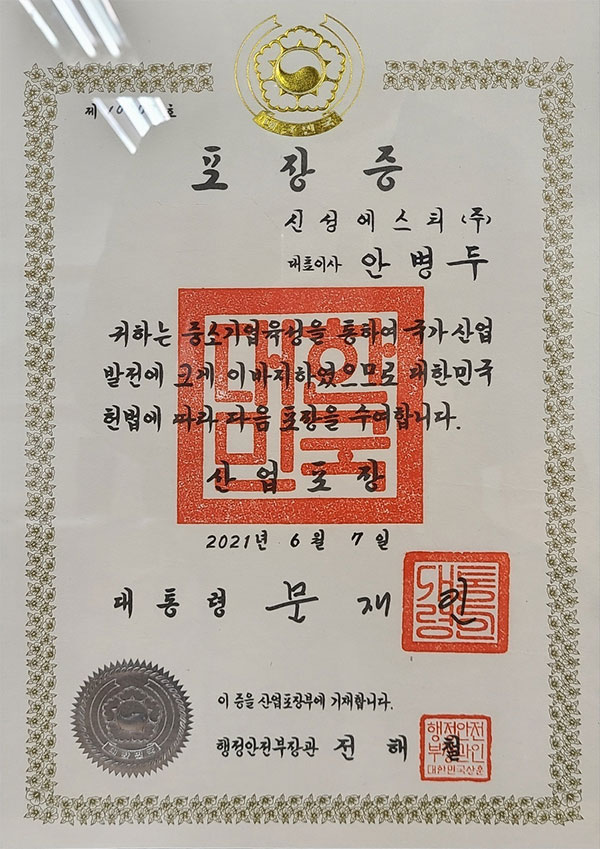 포장증
신성에스티(주)
대표이사 안병두
귀하는 중소기업육성을 통하여 국가산업
발전에 크게 이바지하였으므로 대한민국
헌법에 따라 다음 포장을 수여합니다.
대한민국
산업포장
2021년 6월 7일
대통령 문재인
대통령의인
이 증을 산업포장부에 기재합니다.
행정안전부장관 전해철
행정안전
부장관인
대한민국상훈